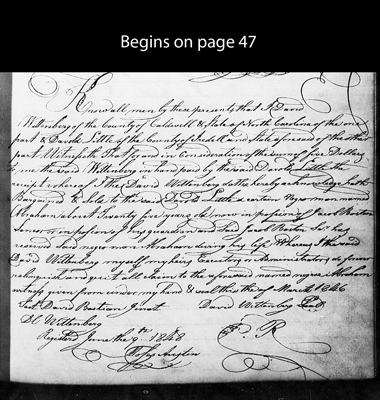 Begins on page 47
Know all men by these presents that I David
Wittenberg of the County of Caldwell & State of North Carolina of the one
part & David Little of the County of Iredell and State aforesaid of the other
part Witnesseth That for and in Consideration of the sum of five Dollars
to me the said Wittenberg in hand paid by the said David Little the
receipt whereof I the David Wittenberg do the hereby acknowledge hath
Bargained & Sold to the said D Little a certain Negro man named
Abraham about Twenty five years old now in possession of Jacob
Senior in possession of my guardian and the said Jacob Sr has
said negro man Abraham during his life I the said
David Wittenberg myself my heirs Executors & Administrators do forever
relinquish and quit all claim to the aforesaid named negro Abraham
witness given from under my hand & seal this of March 1846
Test David Bastian Jurat David Wittenberg Seal
D C Wittenberg
Registered June the 9th 1848 E. R
Austin